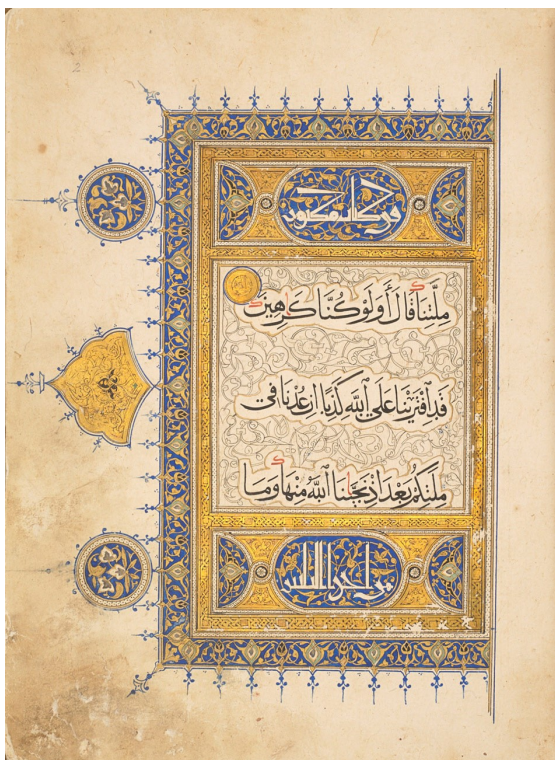 2
في كتاب مكنون
مِلَّتِنَا قَالَ أَوَلَوْ كُنَّا كَرِهِينَ
قَدِ ٱفْتَرَيْنَا عَلَى ٱللَّهِ كَذِبًا إِنْ عُدْنَا فِي
مِلَّتِكُمْ بَعْدَ إِذْ نَجَّىٰنَا ٱللَّهُ مِنْهَا وَمَا
من اجزا